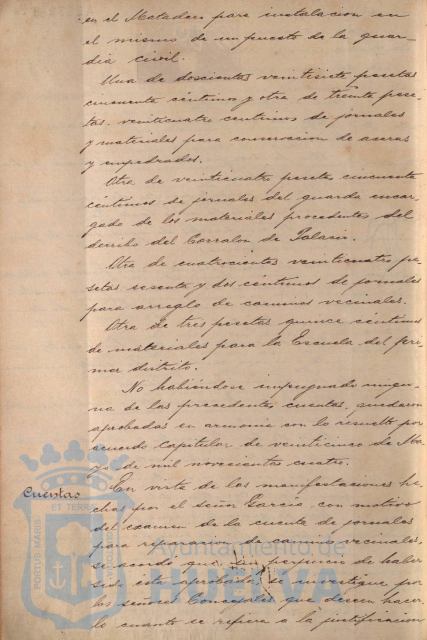 en el Matadero para instalacion en
el mismo de un puesto de la guar-
dia civil.
Una de doscientas veintisiete pesetas
cincuenta céntimos y otra de treinta pese-
tas veinticuatro centimos de jornales
y materiales para conservacion de aceras
y empedrados.
Otra de veinticuatro pesetas cincuenta
céntimos de jornales del guarda encar-
gado de los materiales procedentes del
derribo del Corralon de Palacio.
Otra de cuatrocientas veinticuatro pe-
setas sesenta y dos céntimos de jornales
para arreglo de caminos vecinales.
Otra de tres pesetas quince céntimos
de materiales para la Escuela del pri-
mer distrito.
No habiéndose impugnado ningu-
na de las precedentes cuentas, quedaron
aprobadas en armonia con lo resuelto por
acuerdo Capitular de veinticinco de Ma-
yo de mil novecientos cuatro.
Cuentas
En vista de las manifestaciones he-
chas por el señor Garcia, con motivo
del examen de la cuenta de jornales
para reparacion de caminos vecinales,
se acordó que, sin perjuicio de haber
sido ésta aprobada, se investigue por
los señores Concejales que deseen hacer-
lo cuanto se refiera a la justificacion
PORTUS MARIS
ET TERR
Ayuntamiento de
HUELVA